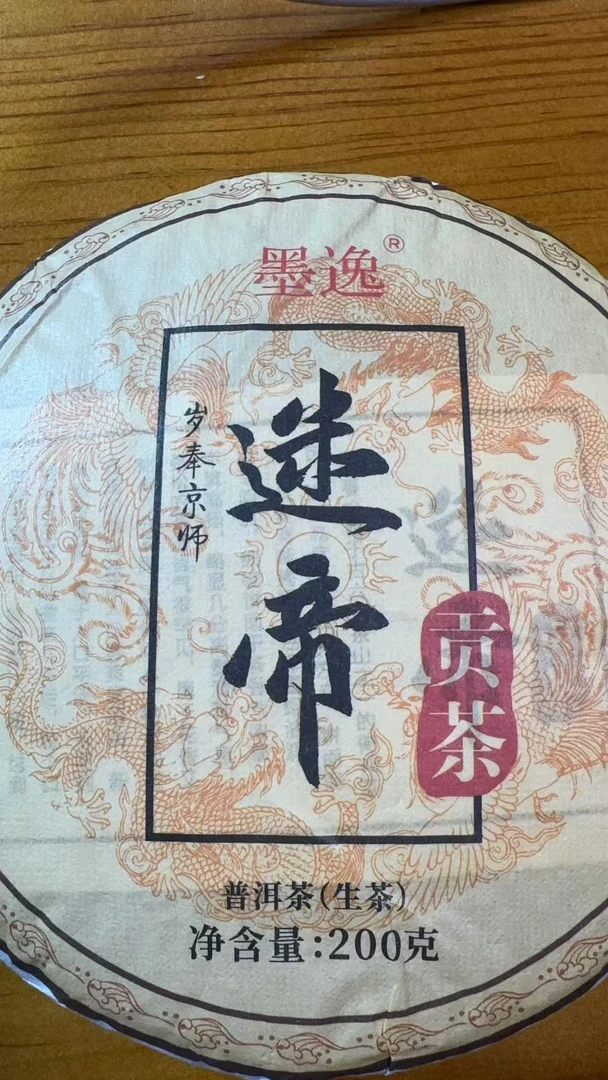 墨逸®
岁奉京师
迷帝
贡茶
普洱茶(生茶)
净含量:200克